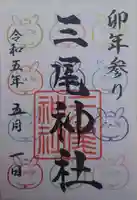 卯年参り
三尾神社
令和五年 五月 一日